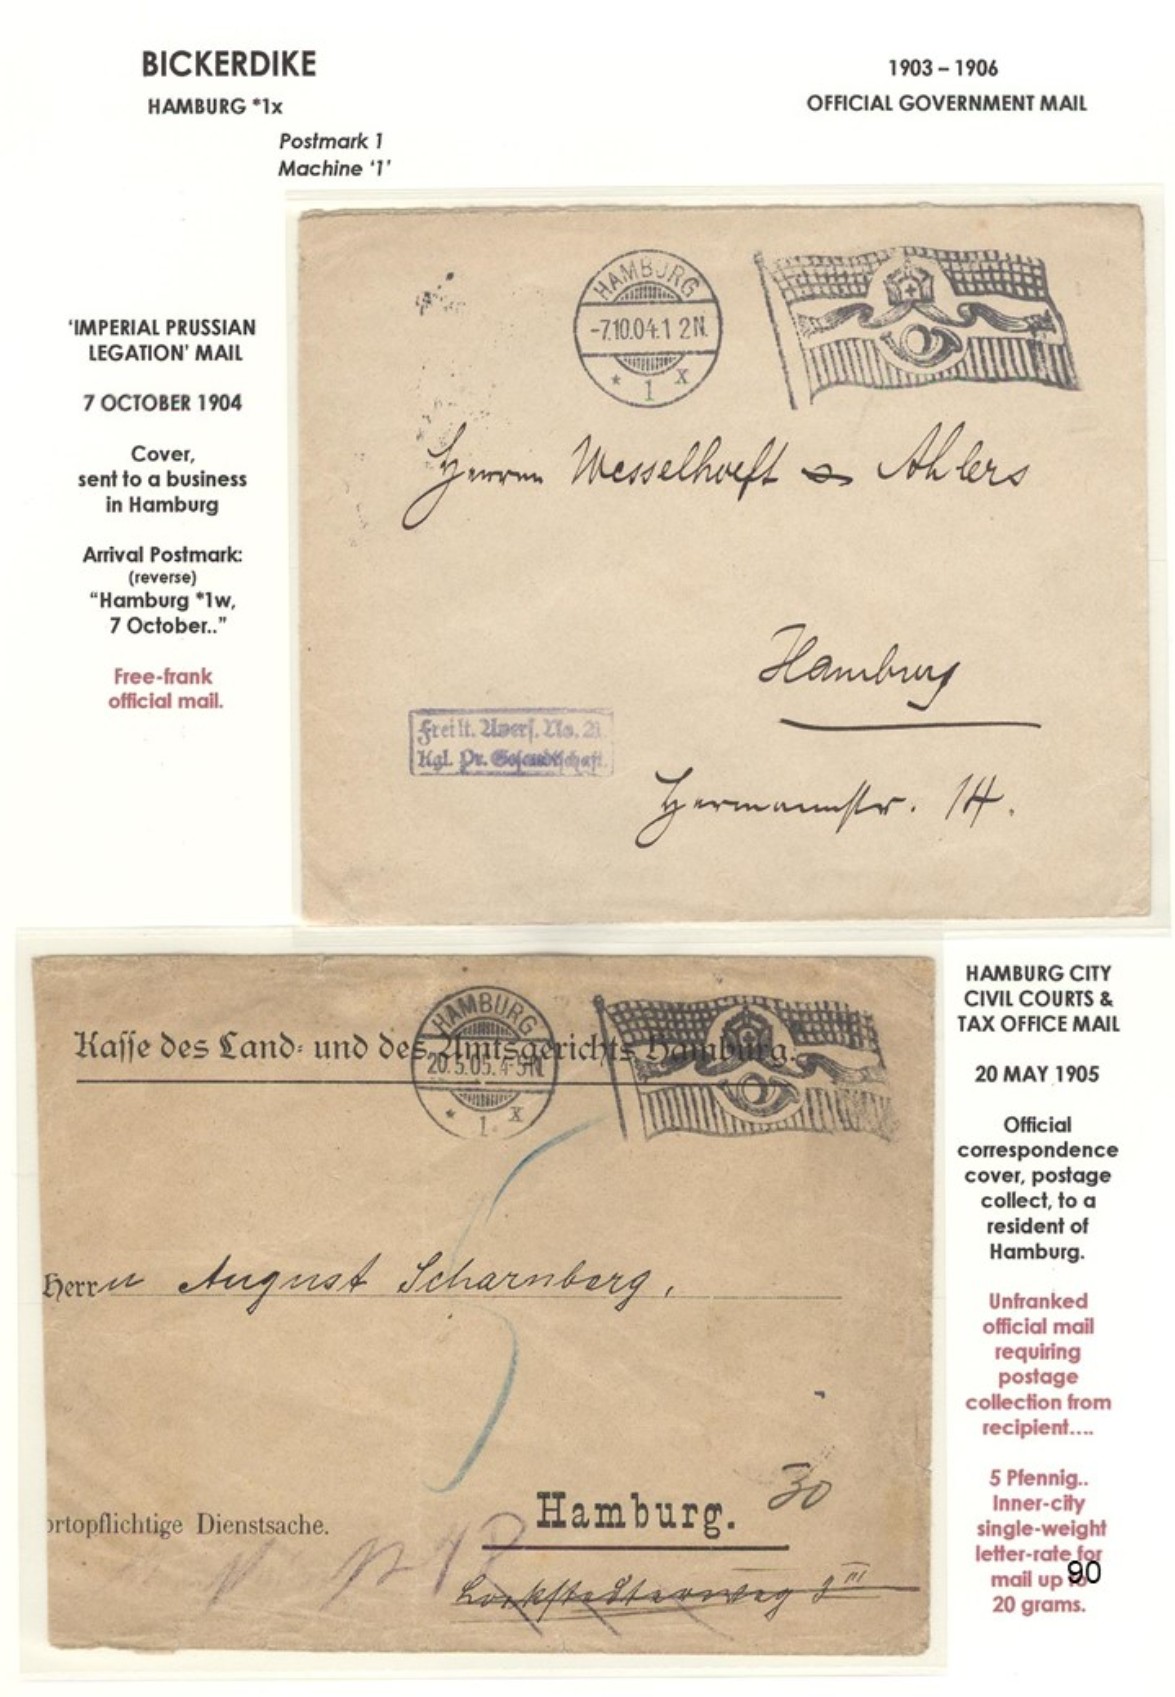 BICKERDIKE
HAMBURG *1x
Postmark 1
Machine ‘1’
1903 – 1906
OFFICIAL GOVERNMENT MAIL
‘IMPERIAL PRUSSIAN
LEGATION’ MAIL
7 OCTOBER 1904
Cover,
sent to a business
in Hamburg
Arrival Postmark:
(reverse)
“Hamburg *1w,
7 October..”
Free-frank
official mail.
HAMBURG
-7.10.04.1 2N.
* 1 x
Herren Wesselhoeft & Ahlers
Hamburg
Frei lt. Avers. No. 21
Kgl. Pr. Gesandtschaft.
Hermannstr. 14.
HAMBURG
20.5.05.4-5N.
* 1. x
Kasse des Land- und des Amtsgerichts Hamburg.
5
Herrn August Scharnberg,
30
Hamburg.
ortopflichtige Dienstsache.
Lockstedterweg 9 III
HAMBURG CITY
CIVIL COURTS &
TAX OFFICE MAIL
20 MAY 1905
Official
correspondence
cover, postage
collect, to a
resident of
Hamburg.
Unfranked
official mail
requiring
postage
collection from
recipient....
5 Pfennig..
Inner-city
single-weight
letter-rate for
mail up to
20 grams.
90